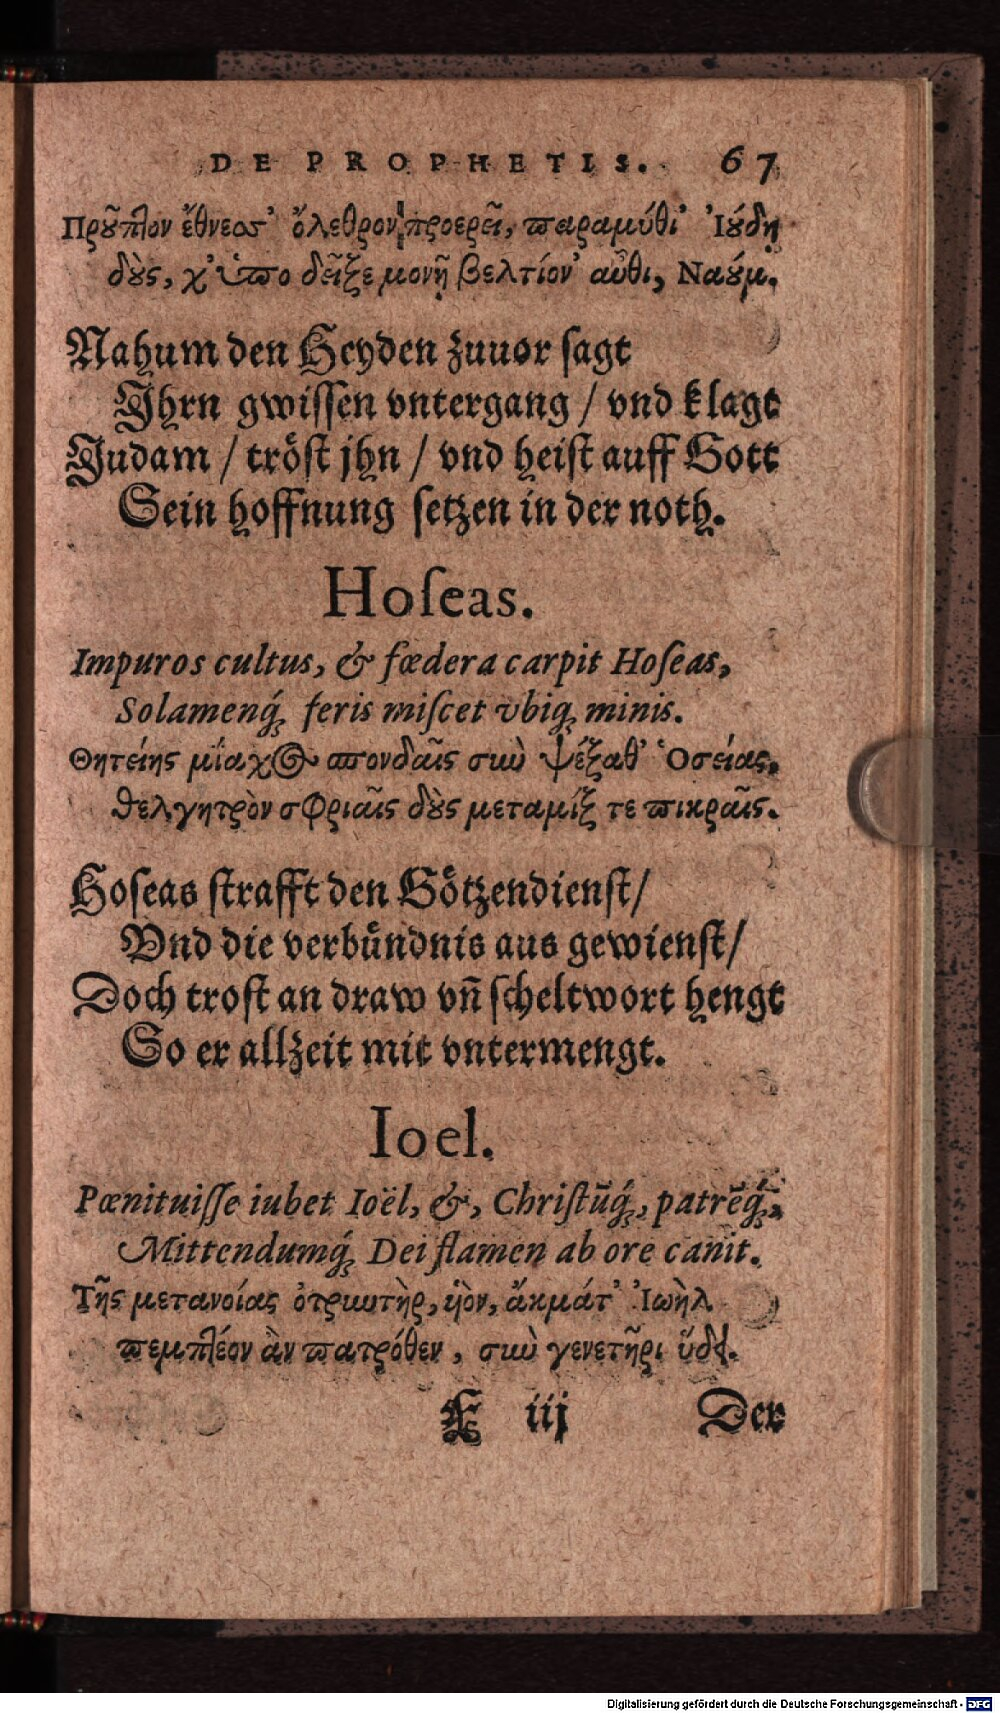 DE PROPHETIS. 67
Προῦπτον ἔθνεσσ' ὄλεθρον προερεῖ, παραμύθι' Ἰούδῃ
δοὺς, χ' ὑπο δεῖξε μονῇ βελτίον' αὖθι, Ναούμ.
Nahum den Heyden zuuor sagt
Ihrn gwissen vntergang / vnd klagt
Judam / tröst jhn / vnd heist auff Gott
Sein hoffnung setzen in der noth.
Hoſeas.
Impuros cultus, & fœdera carpit Hoſeas,
Solamenq́; feris miſcet vbiq; minis.
Θητείης μίαχος σπονδαῖς σὺν ψέξαθ' Ὁσείας,
θελγητρὸν σφριαῖς δοὺς μεταμίξ τε πικραῖς.
Hoſeas ſtrafft den Götzendienſt/
Vnd die verbündnis aus gewienſt/
Doch troſt an draw vñ ſcheltwort hengt
So er allzeit mit vntermengt.
Ioel.
Pœnituiſſe iubet Ioël, &, Chriſtũq́;, patrẽq́;,
Mittendumq́; Dei flamen ab ore canit.
Τῆς μετανοίας ὀτρυντὴρ, ὑὸν, ἄκματ' Ἰωὴλ
πεμπτέον ἂν πατρόθεν, σὺν γενετῆρι ὕδει.
iij Der
Digitalisierung gefördert durch die Deutsche Forschungsgemeinschaft - DFG